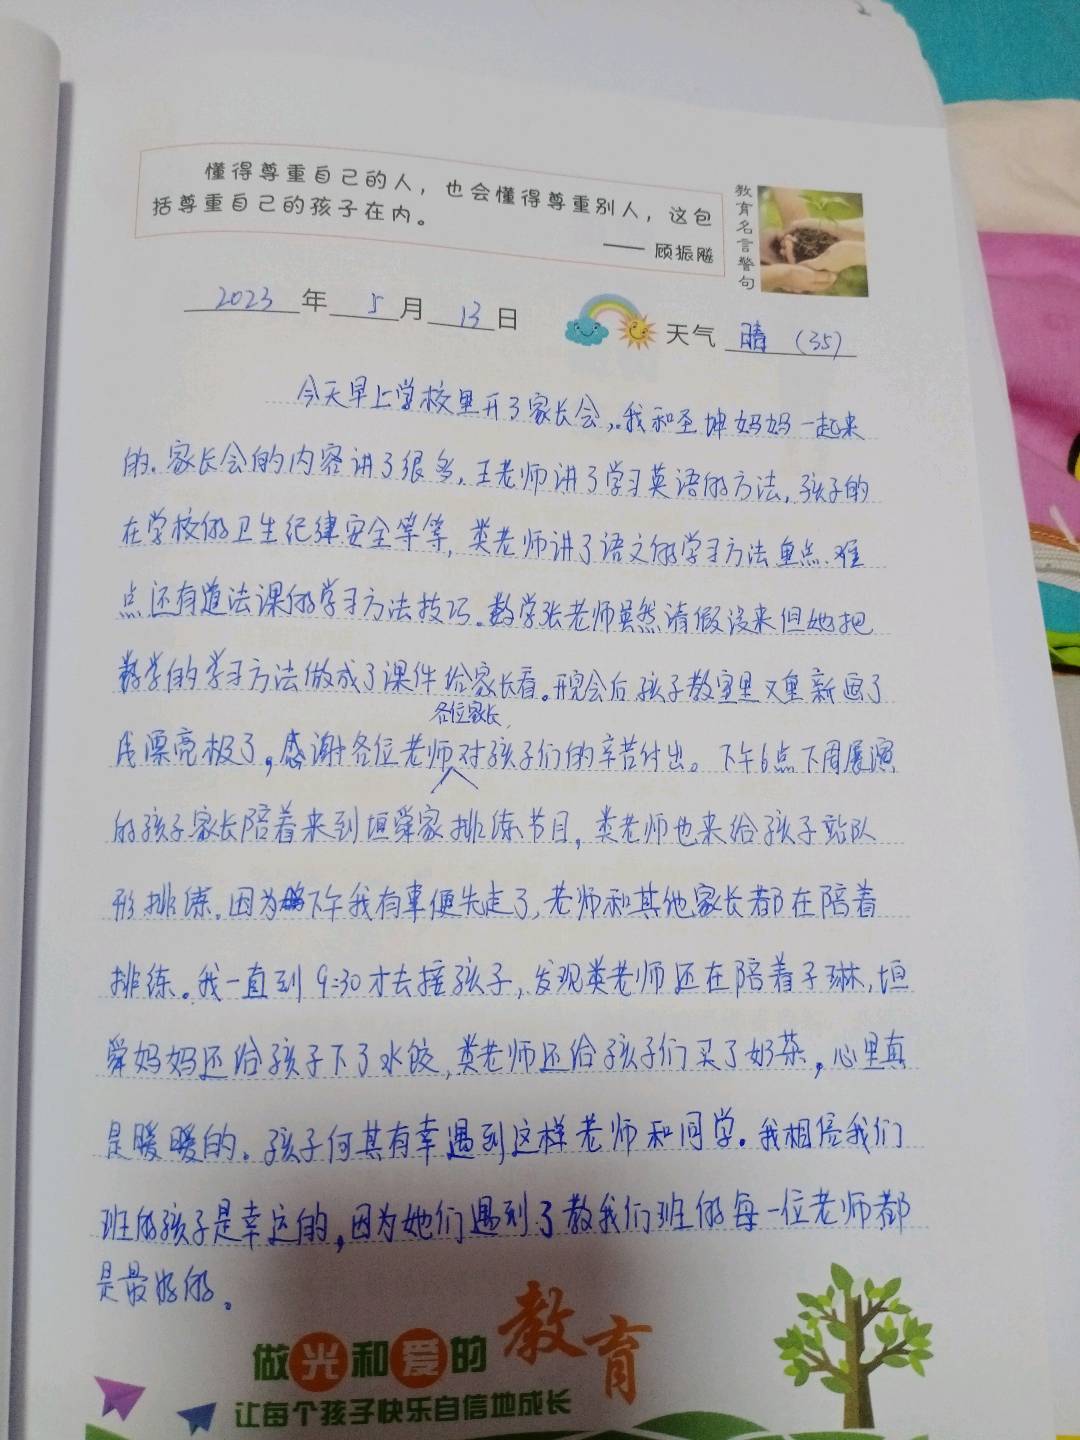 懂得尊重自己的人，也会懂得尊重别人，这包
括尊重自己的孩子在内。
—— 顾振飚
教育名言警句
2023年5月13日
天气 晴（35）
今天早上学校里开了家长会，我和圣坤妈妈一起来
的。家长会的内容讲了很多，王老师讲了学习英语的方法，孩子的
在学校的卫生纪律安全等等，类老师讲了语文的学习方法重点、难
点还有道法课的学习方法技巧。数学张老师虽然请假没来但她把
数学的学习方法做成了课件给家长看。开完会后孩子教室里又重新画了
漂亮极了，感谢各位老师各位家长对孩子们的辛苦付出。下午6点下周展演
的孩子家长陪着来到垣舜家排练节目，类老师也来给孩子站队
形排练。因为下午我有事便先走了，老师和其他家长都在陪着
排练。我一直到9:30才去接孩子，发现类老师还在陪着子琳，垣
舜妈妈还给孩子下了水饺，类老师还给孩子们买了奶茶，心里真
是暖暖的。孩子何其有幸遇到这样老师和同学。我相信我们
班的孩子是幸运的，因为她们遇到了教我们班的每一位老师都
是最好的。
做光和爱的教育
让每个孩子快乐自信地成长